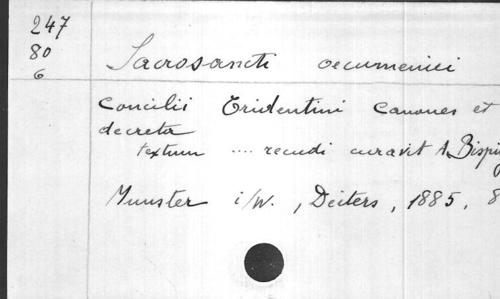 247
80
6
Sacrosancti oecumenici
Concilii Tridentini Canones et
decreta
textum .... recudi curavit A. Bisping
Munster i/W. , Deiters , 1885. 8